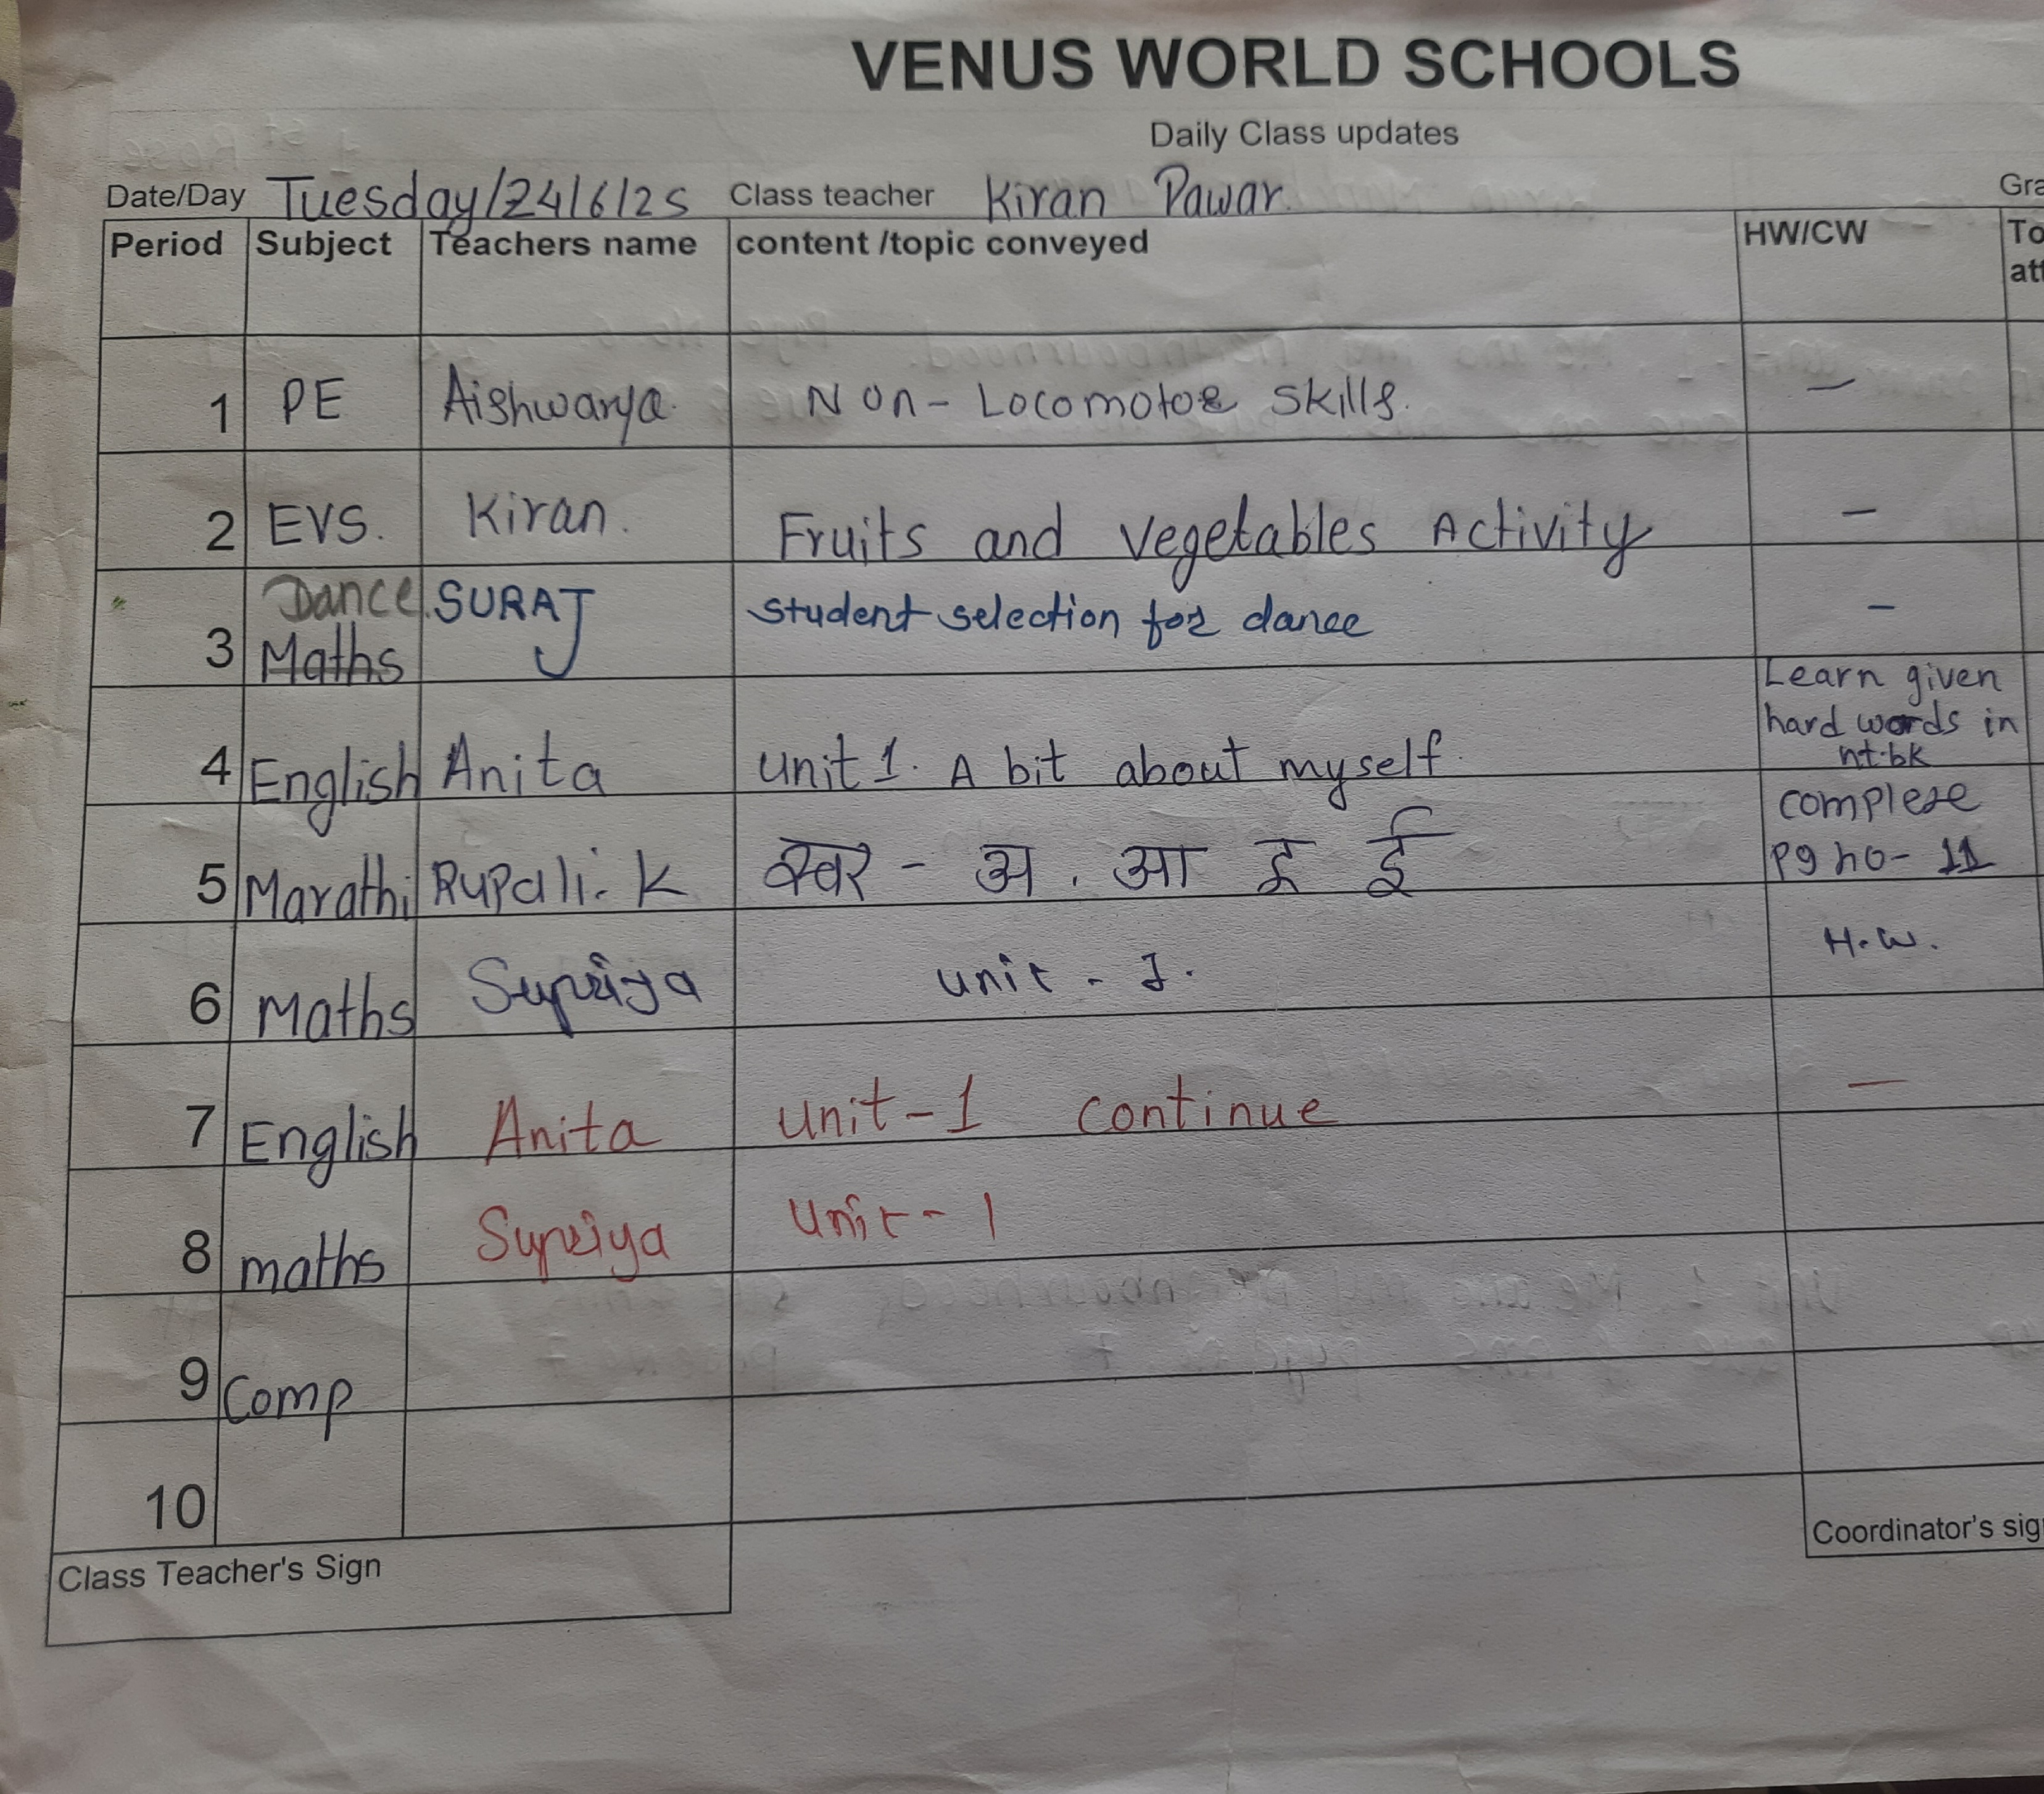 VENUS WORLD SCHOOLS
Daily Class updates
Date/Day Tuesday/24/6/25 Class teacher Kiran Pawar. Gra
Period Subject Teachers name content /topic conveyed HW/CW To
att
1 PE Aishwarya. Non-Locomotor Skills. —
2 EVS. Kiran. Fruits and Vegetables Activity —
Dance. SURAJ student selection for dance —
3 Maths
Learn given
hard words in
nt.bk
4 English Anita Unit 1. A bit about myself.
complete
pg no- 11
5 Marathi Rupali. K स्वर - अ . आ इ ई
6 Maths Supriya unit - 1. H.W.
7 English Anita Unit-1 continue —
8 maths Supriya Unit-1
9 Comp
10
Class Teacher's Sign Coordinator's sig